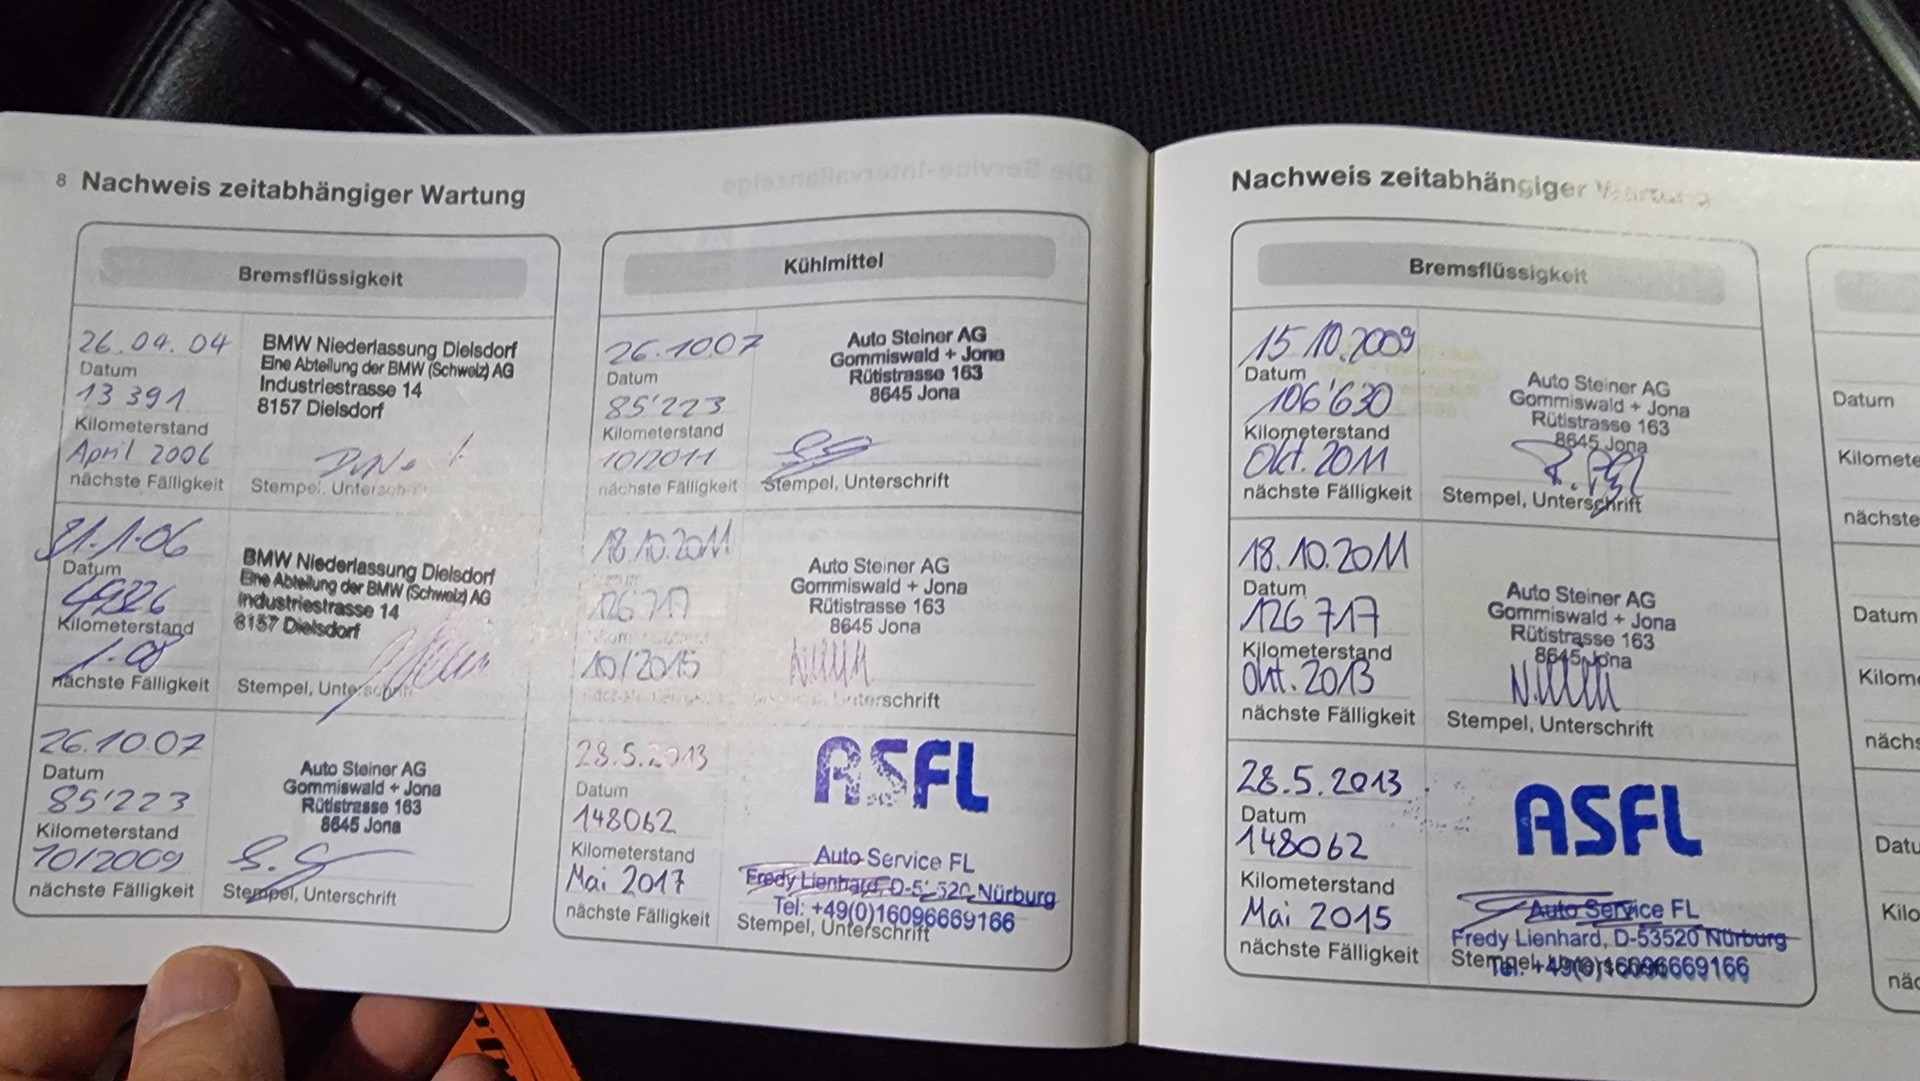 8 Nachweis zeitabhängiger Wartung
Bremsflüssigkeit
26.04.04
Datum
13 391
Kilometerstand
April 2006
nächste Fälligkeit
BMW Niederlassung Dielsdorf
Eine Abteilung der BMW (Schweiz) AG
Industriestrasse 14
8157 Dielsdorf
Stempel, Unterschrift
31.1.06
Datum
49326
Kilometerstand
1.08
nächste Fälligkeit
BMW Niederlassung Dielsdorf
Eine Abteilung der BMW (Schweiz) AG
Industriestrasse 14
8157 Dielsdorf
Stempel, Unterschrift
26.10.07
Datum
85'223
Kilometerstand
10/2009
nächste Fälligkeit
Auto Steiner AG
Gommiswald + Jona
Rütistrasse 163
8645 Jona
Stempel, Unterschrift
Kühlmittel
26.10.07
Datum
85'223
Kilometerstand
10/2011
nächste Fälligkeit
Auto Steiner AG
Gommiswald + Jona
Rütistrasse 163
8645 Jona
Stempel, Unterschrift
18.10.2011
126 717
10/2015
Auto Steiner AG
Gommiswald + Jona
Rütistrasse 163
8645 Jona
Unterschrift
28.5.2013
Datum
148062
Kilometerstand
Mai 2017
nächste Fälligkeit
ASFL
Auto Service FL
Fredy Lienhard, D-53520 Nürburg
Tel: +49(0)16096669166
Stempel, Unterschrift
Nachweis zeitabhängiger Wartung
Bremsflüssigkeit
15.10.2009
Datum
106'630
Kilometerstand
Okt. 2011
nächste Fälligkeit
Auto Steiner AG
Gommiswald + Jona
Rütistrasse 163
8645 Jona
Stempel, Unterschrift
18.10.2011
Datum
126 717
Kilometerstand
Okt. 2013
nächste Fälligkeit
Auto Steiner AG
Gommiswald + Jona
Rütistrasse 163
8645 Jona
Stempel, Unterschrift
28.5.2013
Datum
148062
Kilometerstand
Mai 2015
nächste Fälligkeit
ASFL
Auto Service FL
Fredy Lienhard, D-53520 Nürburg
Tel: +49(0)16096669166
Stempel, Unterschrift
Datum
Kilomete
nächste
Datum
Kilome
nächs
Datu
Kilo
näc